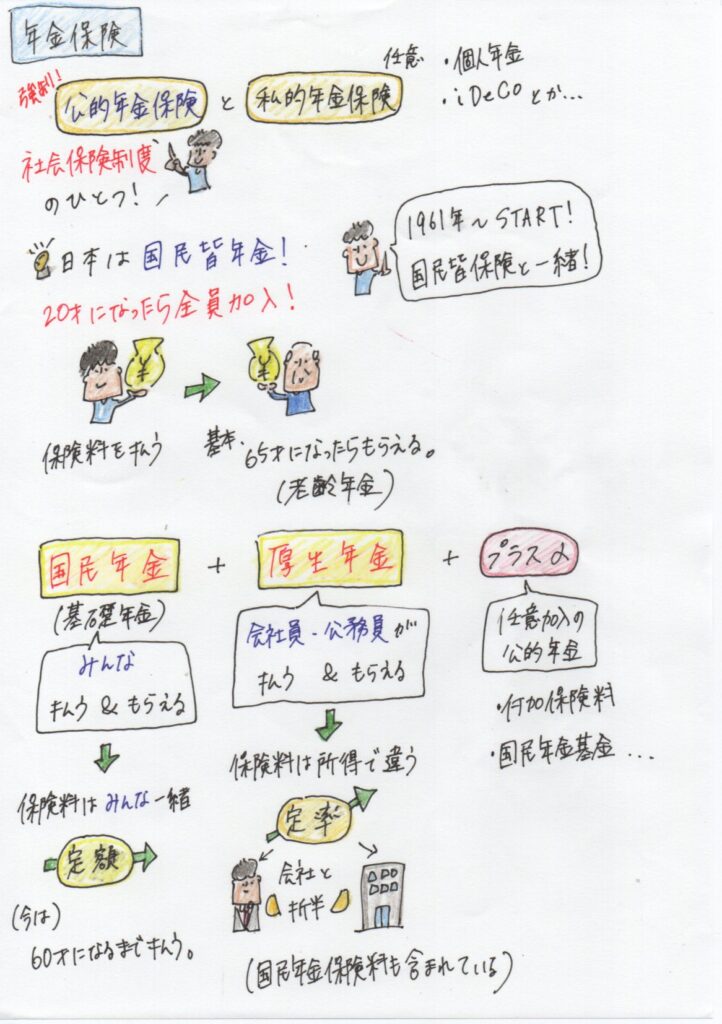 年金保険
強制!
公的年金保険 と 私的年金保険
任意 ・個人年金
・iDeCoとか...
社会保険制度
のひとつ!
1961年~START!
国民皆保険と一緒!
日本は国民皆年金!
20才になったら全員加入!
¥
¥
保険料を払う
基本、65才になったらもらえる。
(老齢年金)
国民年金 + 厚生年金 + プラスα
(基礎年金)
みんな
払う & もらえる
会社員・公務員が
払う & もらえる
任意加入の
公的年金
・付加保険料
・国民年金基金...
保険料はみんな一緒
定額
(今は)
60才になるまで払う。
保険料は所得で違う
定率
会社と
折半
(国民年金保険料も含まれている)